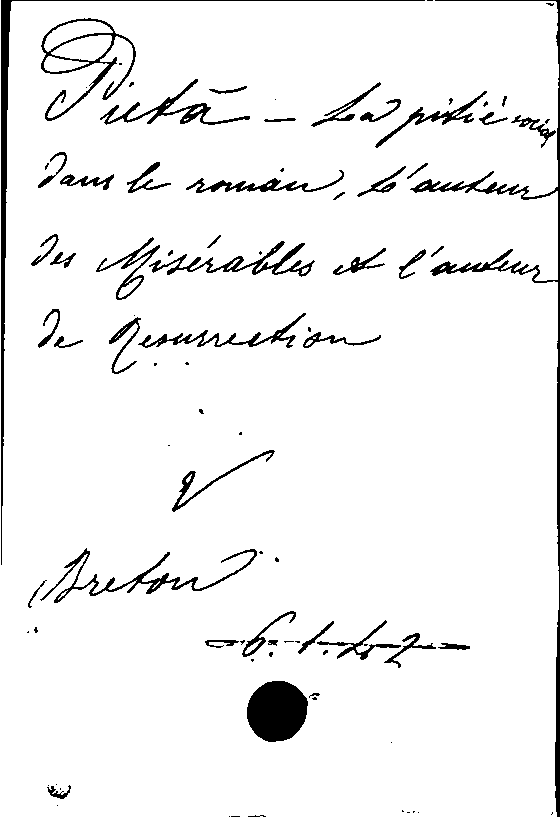 Pietà - La pitié sociale
dans le roman, L'auteur
des Misérables et l'auteur
de Resurrection
V
Breton